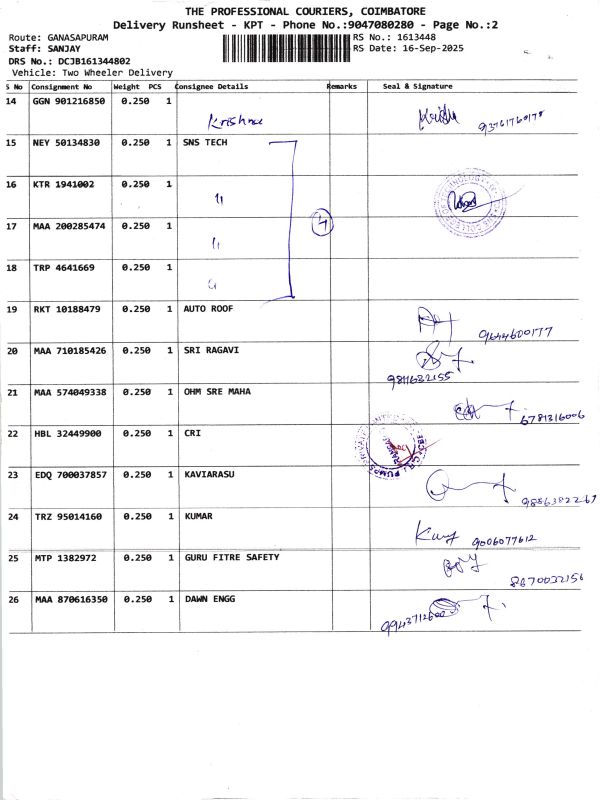 THE PROFESSIONAL COURIERS, COIMBATORE
Delivery Runsheet - KPT - Phone No.:9047080280 - Page No.:2
Route: GANASAPURAM RS No.: 1613448
Staff: SANJAY RS Date: 16-Sep-2025
DRS No.: DCJB161344802
Vehicle: Two Wheeler Delivery
S No Consignment No Weight PCS Consignee Details Remarks Seal & Signature
14 GGN 901216850 0.250 1 Krishna
15 NEY 50134830 0.250 1 SNS TECH
16 KTR 1941002 0.250 1 "
17 MAA 200285474 0.250 1 " 4
18 TRP 4641669 0.250 1 "
19 RKT 10188479 0.250 1 AUTO ROOF 9644600177
20 MAA 710185426 0.250 1 SRI RAGAVI 9811632155
21 MAA 574049338 0.250 1 OHM SRE MAHA 6781316006
22 HBL 32449900 0.250 1 CRI
23 EDQ 700037857 0.250 1 KAVIARASU
24 TRZ 95014160 0.250 1 KUMAR 9006077612
25 MTP 1382972 0.250 1 GURU FITRE SAFETY 8870032156
26 MAA 870616350 0.250 1 DAWN ENGG 9943712600